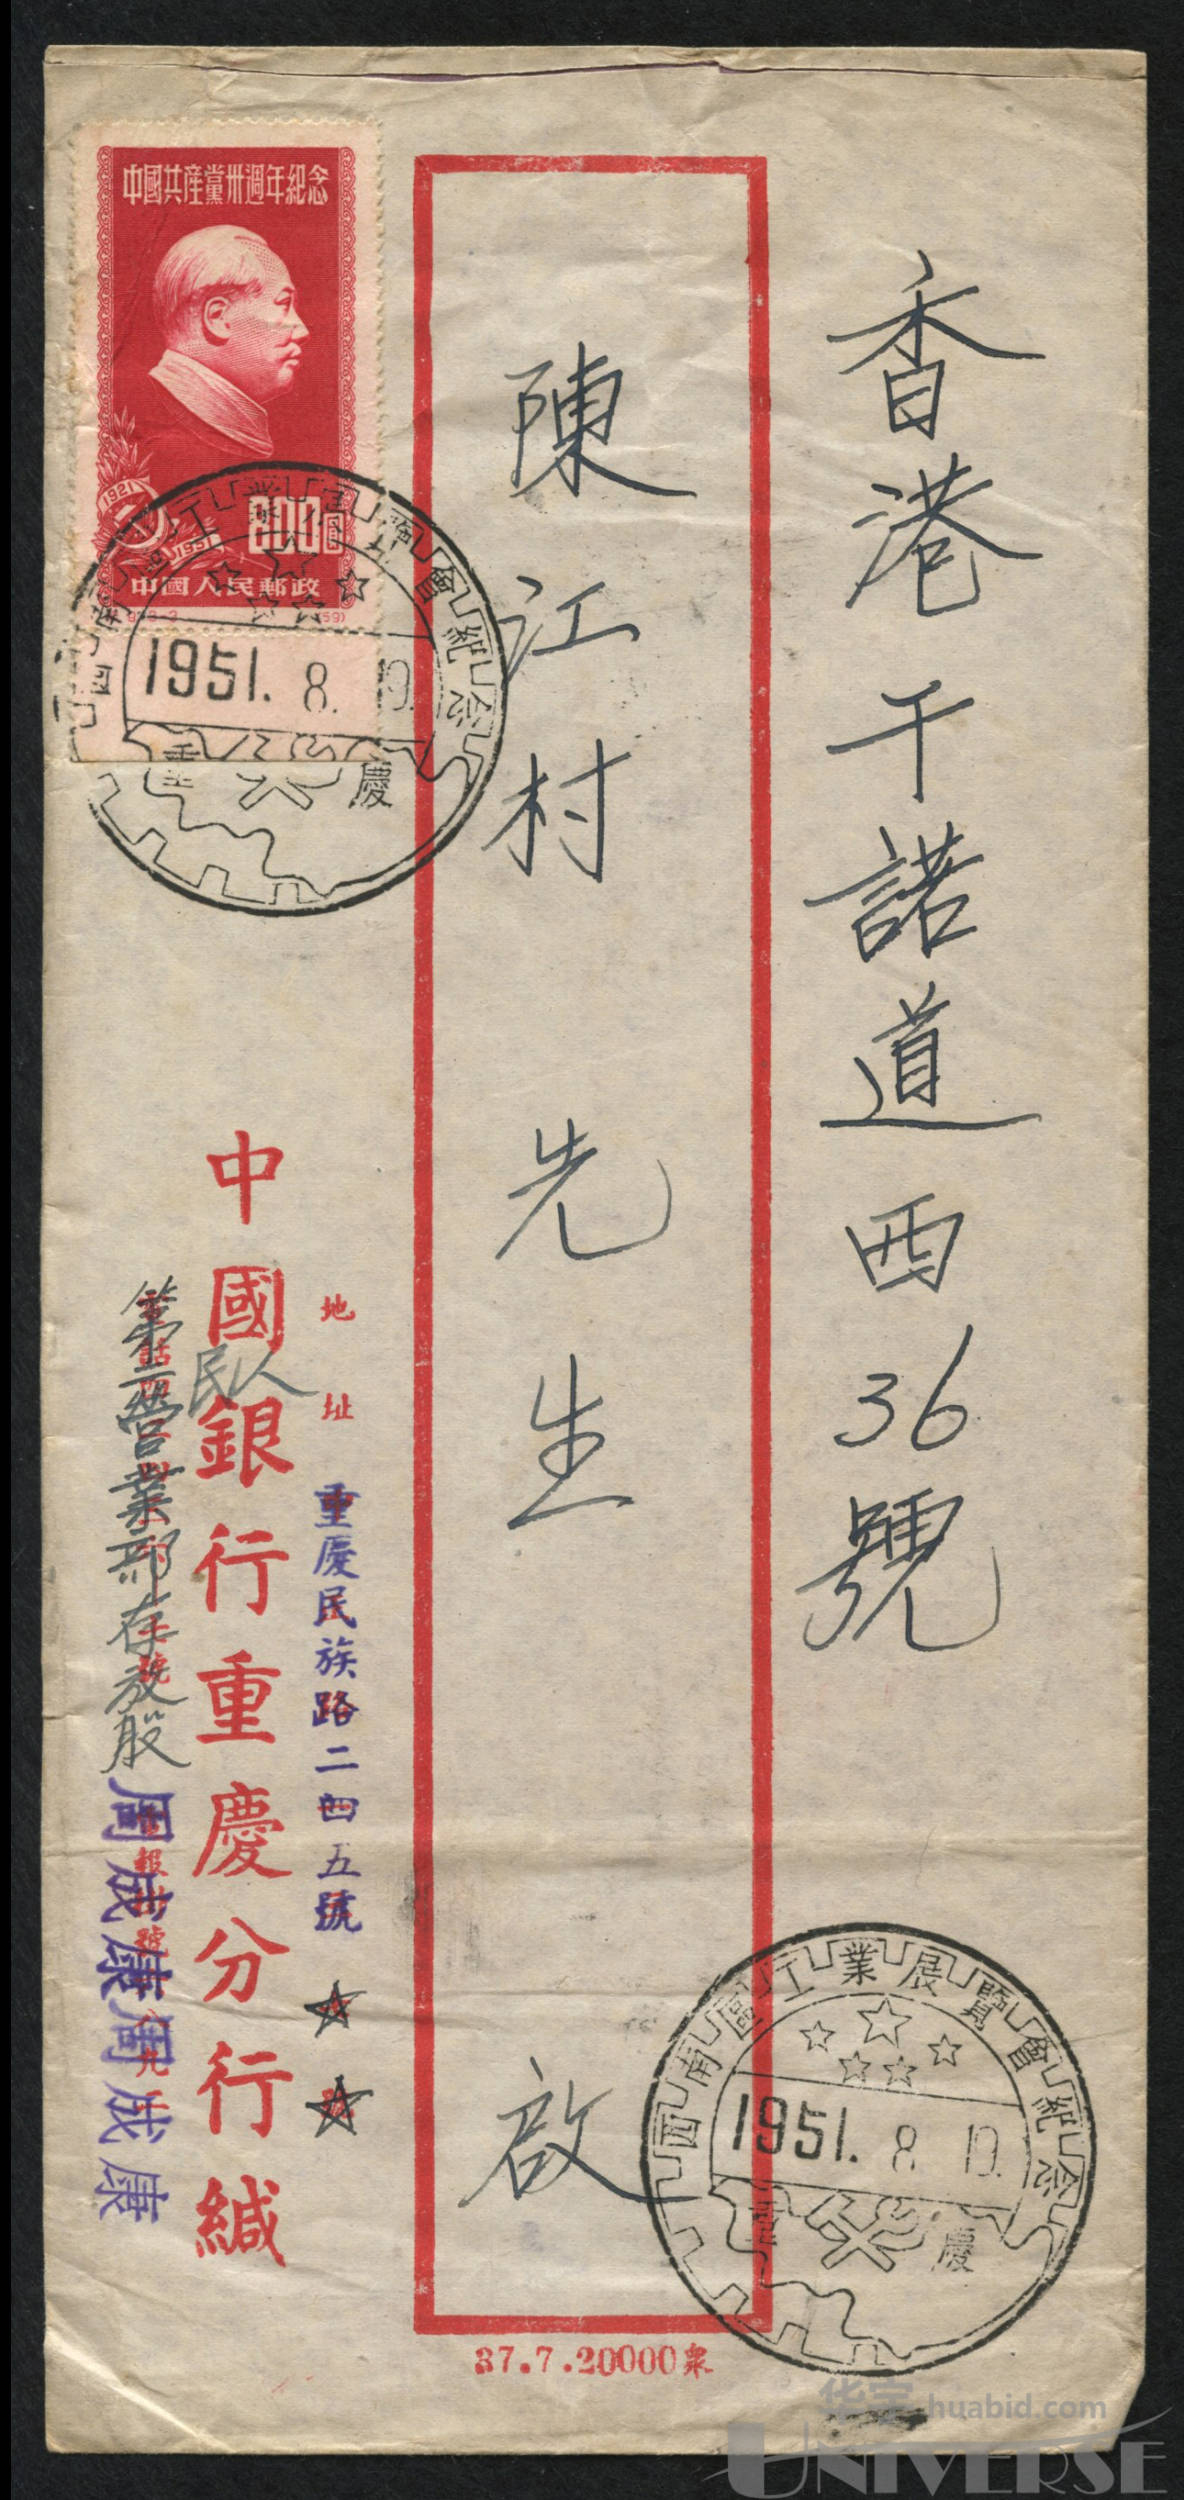 香港干諾道西36號
陳江村先生 啟
中國共産黨卅週年紀念
1921
1951
800圓
中國人民郵政
西南區工業展覽會紀念
1951. 8. 19.
重慶
地址
重慶民族路二四五號
中國人民銀行重慶分行緘
第一營業部存放股
周成康周成康
37.7.20000衆
西南區工業展覽會紀念
1951. 8. 19.
重慶
华宇 huabid.com
UNIVERSE